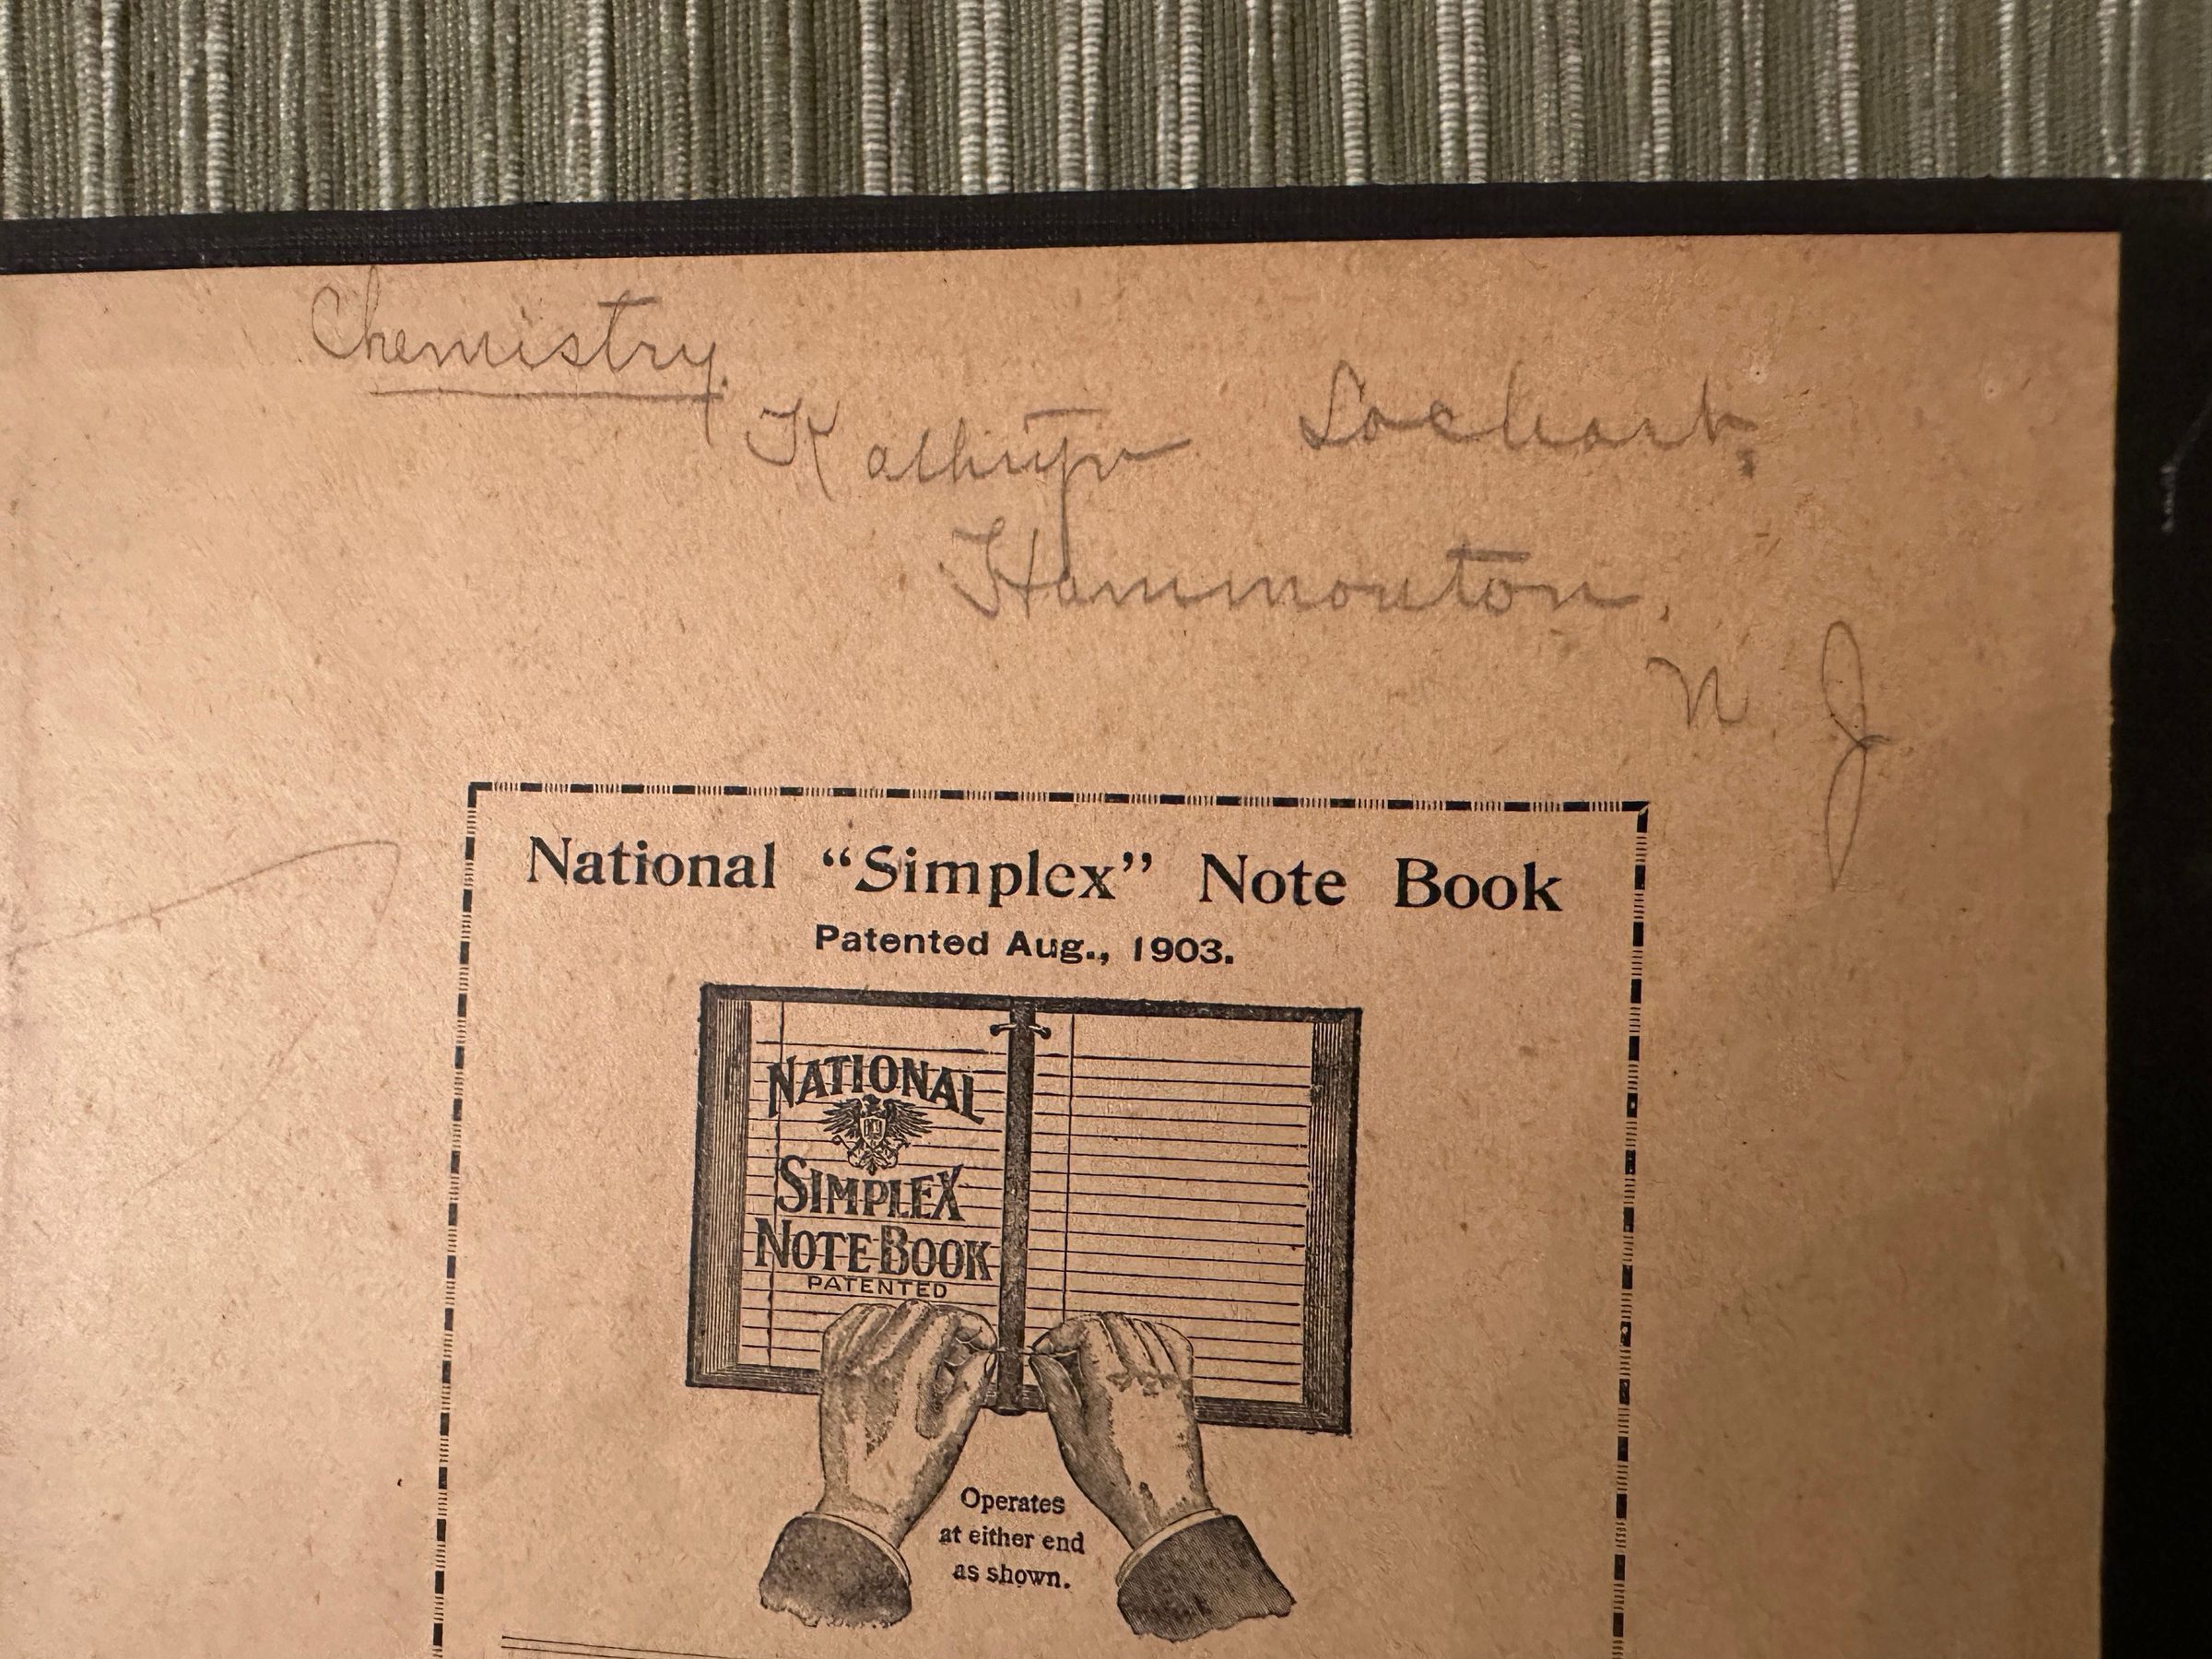 Chemistry.
Kathryn Lochart,
Hammonton,
N. J
National “Simplex” Note Book
Patented Aug., 1903.
NATIONAL
SIMPLEX
NOTE BOOK
PATENTED
Operates
at either end
as shown.